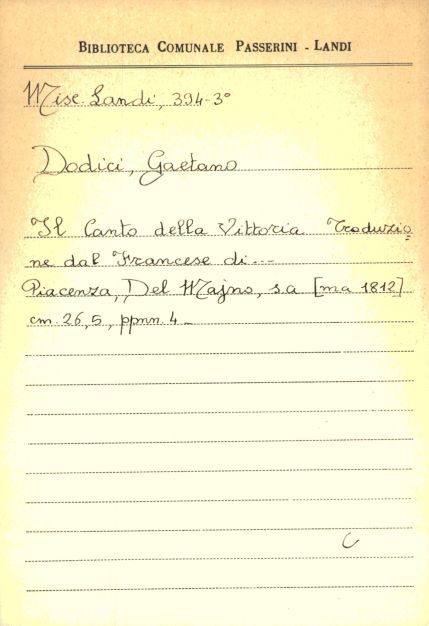 BIBLIOTECA COMUNALE PASSERINI - LANDI
Misc. Landi, 394-3°
Dodici, Gaetano
Il Canto della Vittoria Traduzio
ne dal Francese di...
Piacenza, Del Majno, s.a [ma 1812]
cm. 26,5, ppnn. 4_
C